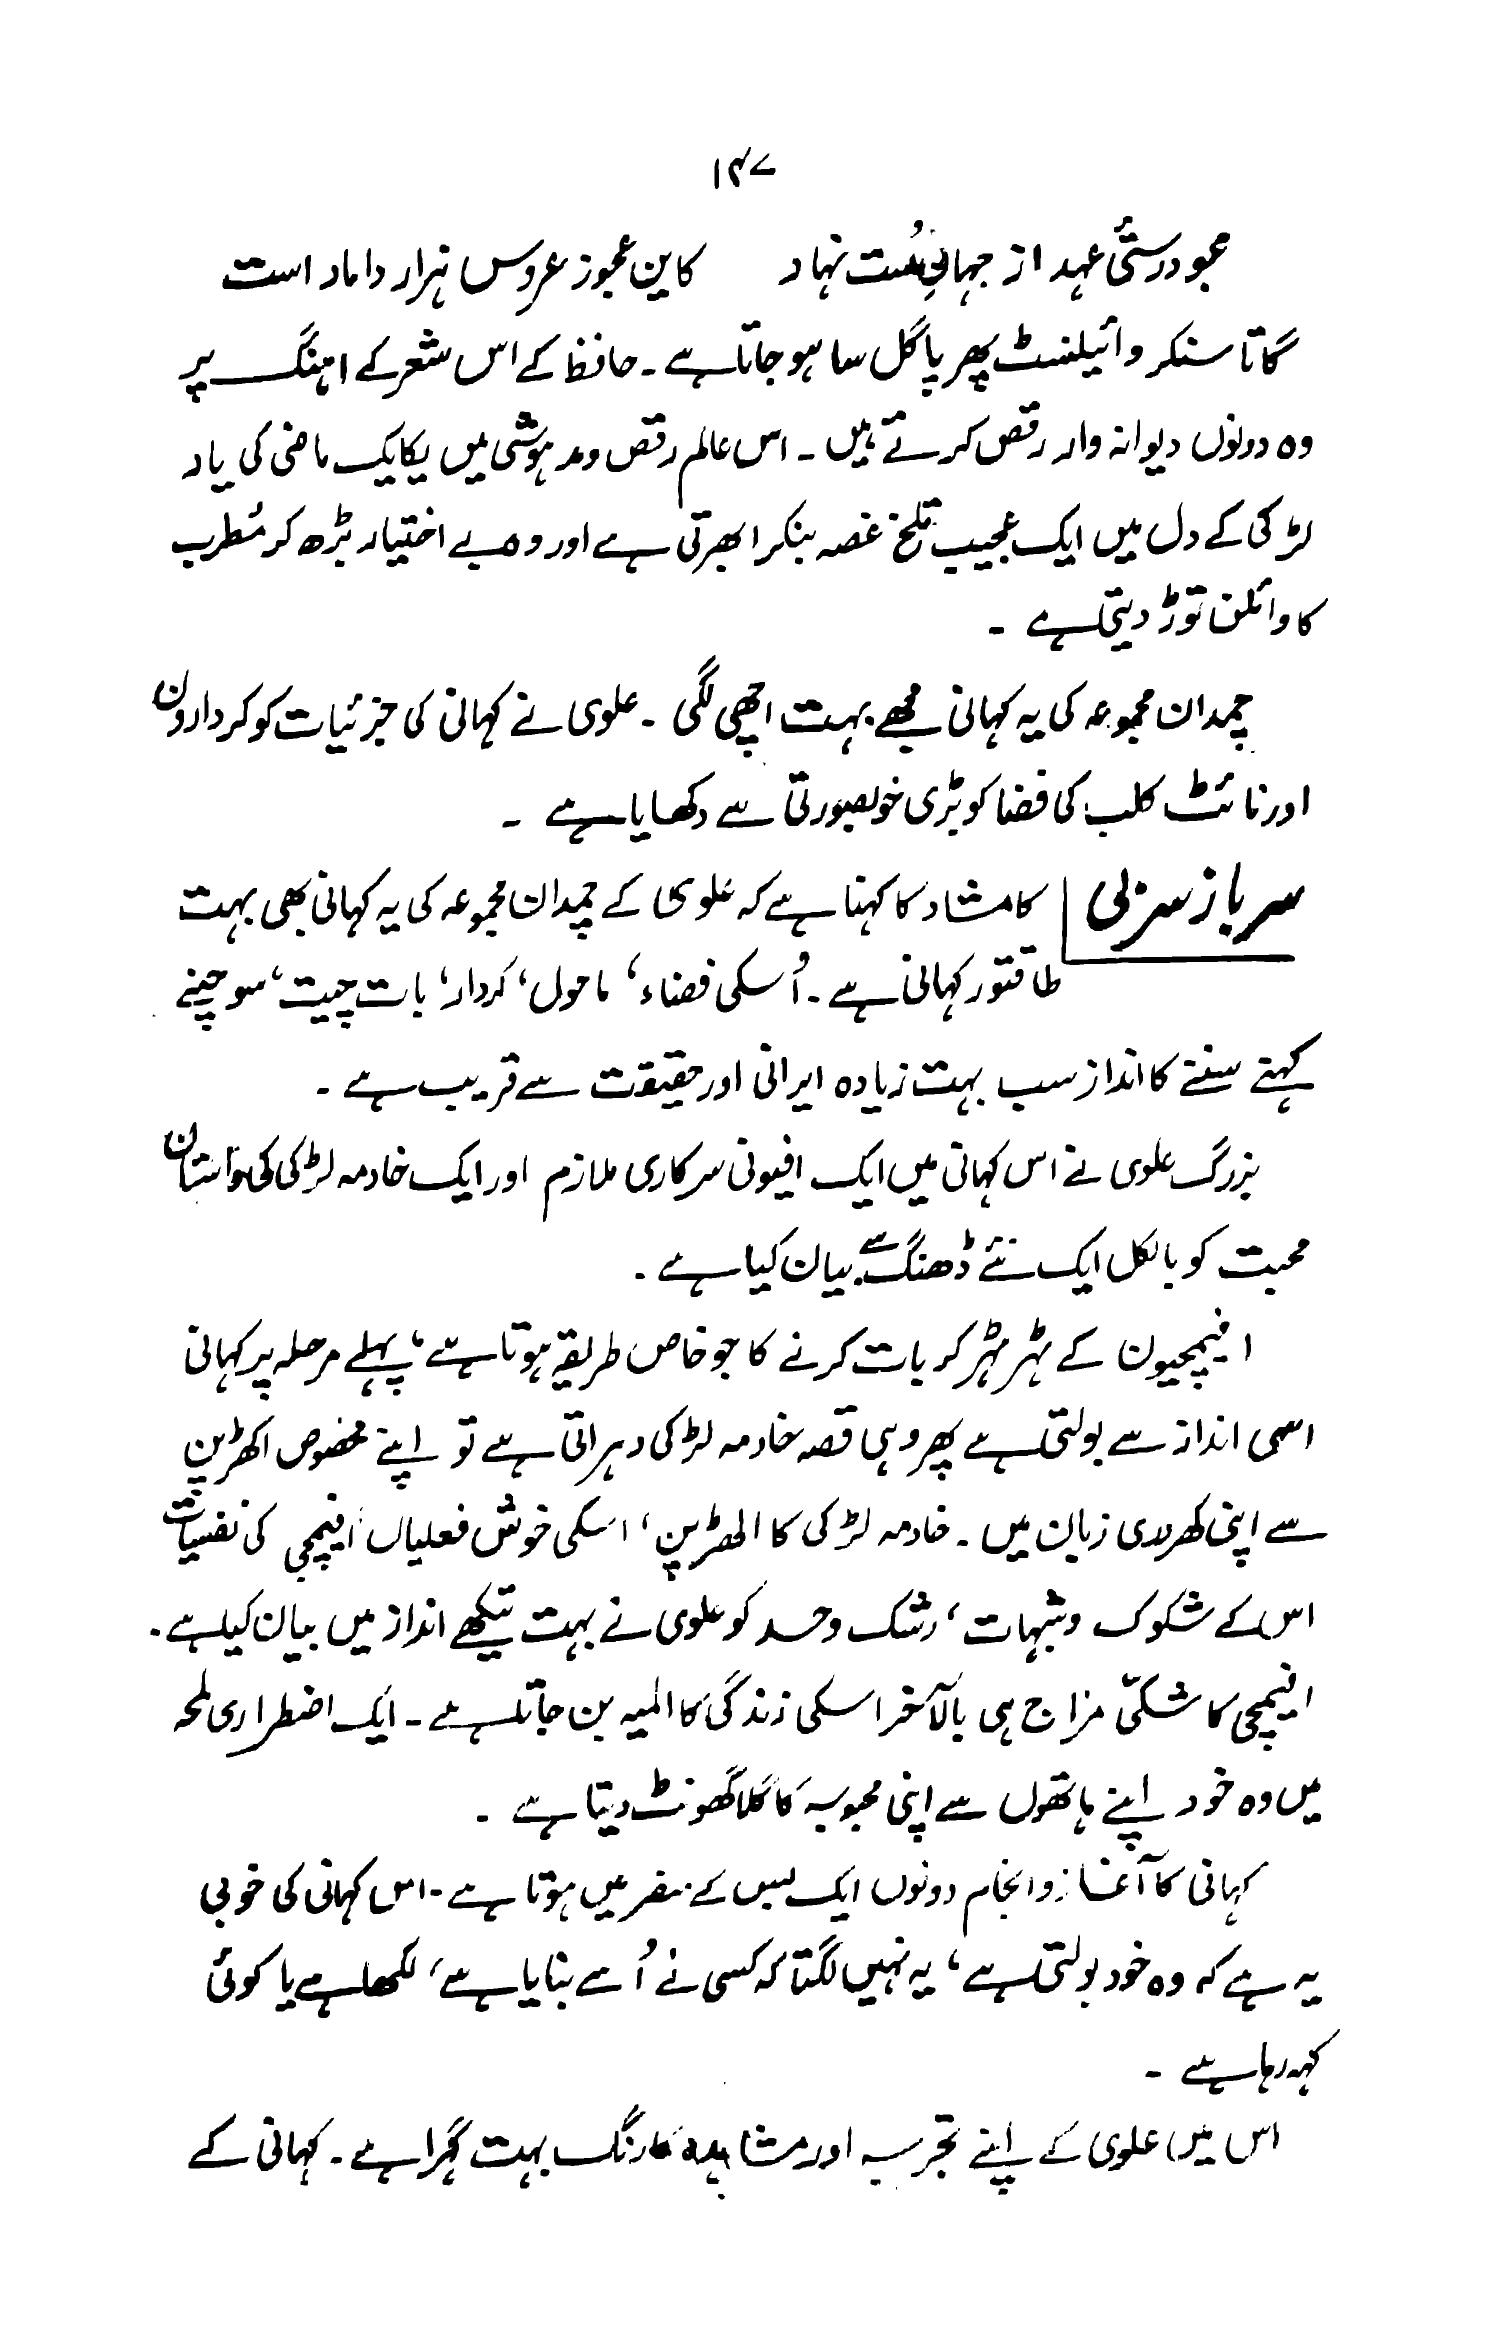 ۱۴۷
مجو درستیٔ عہد از جہانِ سُست نہاد کاین عجوز عروس ہزار داماد است
گاتا سنکر وائیلنسٹ پھر پاگل سا ہو جاتا ہے ۔ حافظ کے اس شعر کے اہنگ پر
وہ دونوں دیوانہ وار رقص کرتے ہیں ۔ اس عالم رقص و مدہوشی میں یکایک ماضی کی یاد
لڑکی کے دل میں ایک عجیب تلخ غصہ بنکر ابھرتی ہے اور وہ بے اختیار بڑھ کر مُطرب
کا وائلن توڑ دیتی ہے ۔
چمدان مجموعہ کی یہ کہانی مجھے بہت اچھی لگی ۔ علوی نے کہانی کی جزئیات کو کرداروں
اور نائٹ کلب کی فضا کو بڑی خوبصورتی سے دکھایا ہے ۔
سرباز سربی کامشاد کا کہنا ہے کہ علوی کے چمدان مجموعہ کی یہ کہانی بھی بہت
طاقتور کہانی ہے ۔ اُسکی فضاء، ماحول، کردار، بات چیت، سوچنے
کہتے سننے کا انداز سب بہت زیادہ ایرانی اور حقیقت سے قریب ہے ۔
بزرگ علوی نے اس کہانی میں ایک افیونی سرکاری ملازم اور ایک خادمہ لڑکی کی داستان
محبت کو بالکل ایک نئے ڈھنگ سے بیان کیا ہے ۔
افیمچیون کے ٹہر ٹہر کر بات کرنے کا جو خاص طریقہ ہوتا ہے، پہلے مرحلہ پر کہانی
اسی انداز سے بولتی ہے پھر وہی قصہ خادمہ لڑکی دہراتی ہے تو اپنے مخصوص اکھڑپن
سے اپنی کھردی زبان میں ۔ خادمہ لڑکی کا الھڑپن، اسکی خوش فعلیاں افیمچی کی نفسیات
اس کے شکوک و شبہات، رشک و حسد کو علوی نے بہت تیکھے انداز میں بیان کیا ہے ۔
افیمچی کا شکیّ مزاج ہی بالآخر اسکی زندگی کا المیہ بن جاتا ہے ۔ ایک اضطراری لمحہ
میں وہ خود اپنے ہاتھوں سے اپنی محبوبہ کا گلا گھونٹ دیتا ہے ۔
کہانی کا آغاز و انجام دونوں ایک بس کے سفر میں ہوتا ہے ۔ اس کہانی کی خوبی
یہ ہے کہ وہ خود بولتی ہے، یہ نہیں لگتا کہ کسی نے اُسے بنایا ہے، لکھا ہے یا کوئی
کہہ رہا ہے ۔
اس میں علوی کے اپنے تجربہ اور مشاہدہ کا رنگ بہت گہرا ہے ۔ کہانی کے